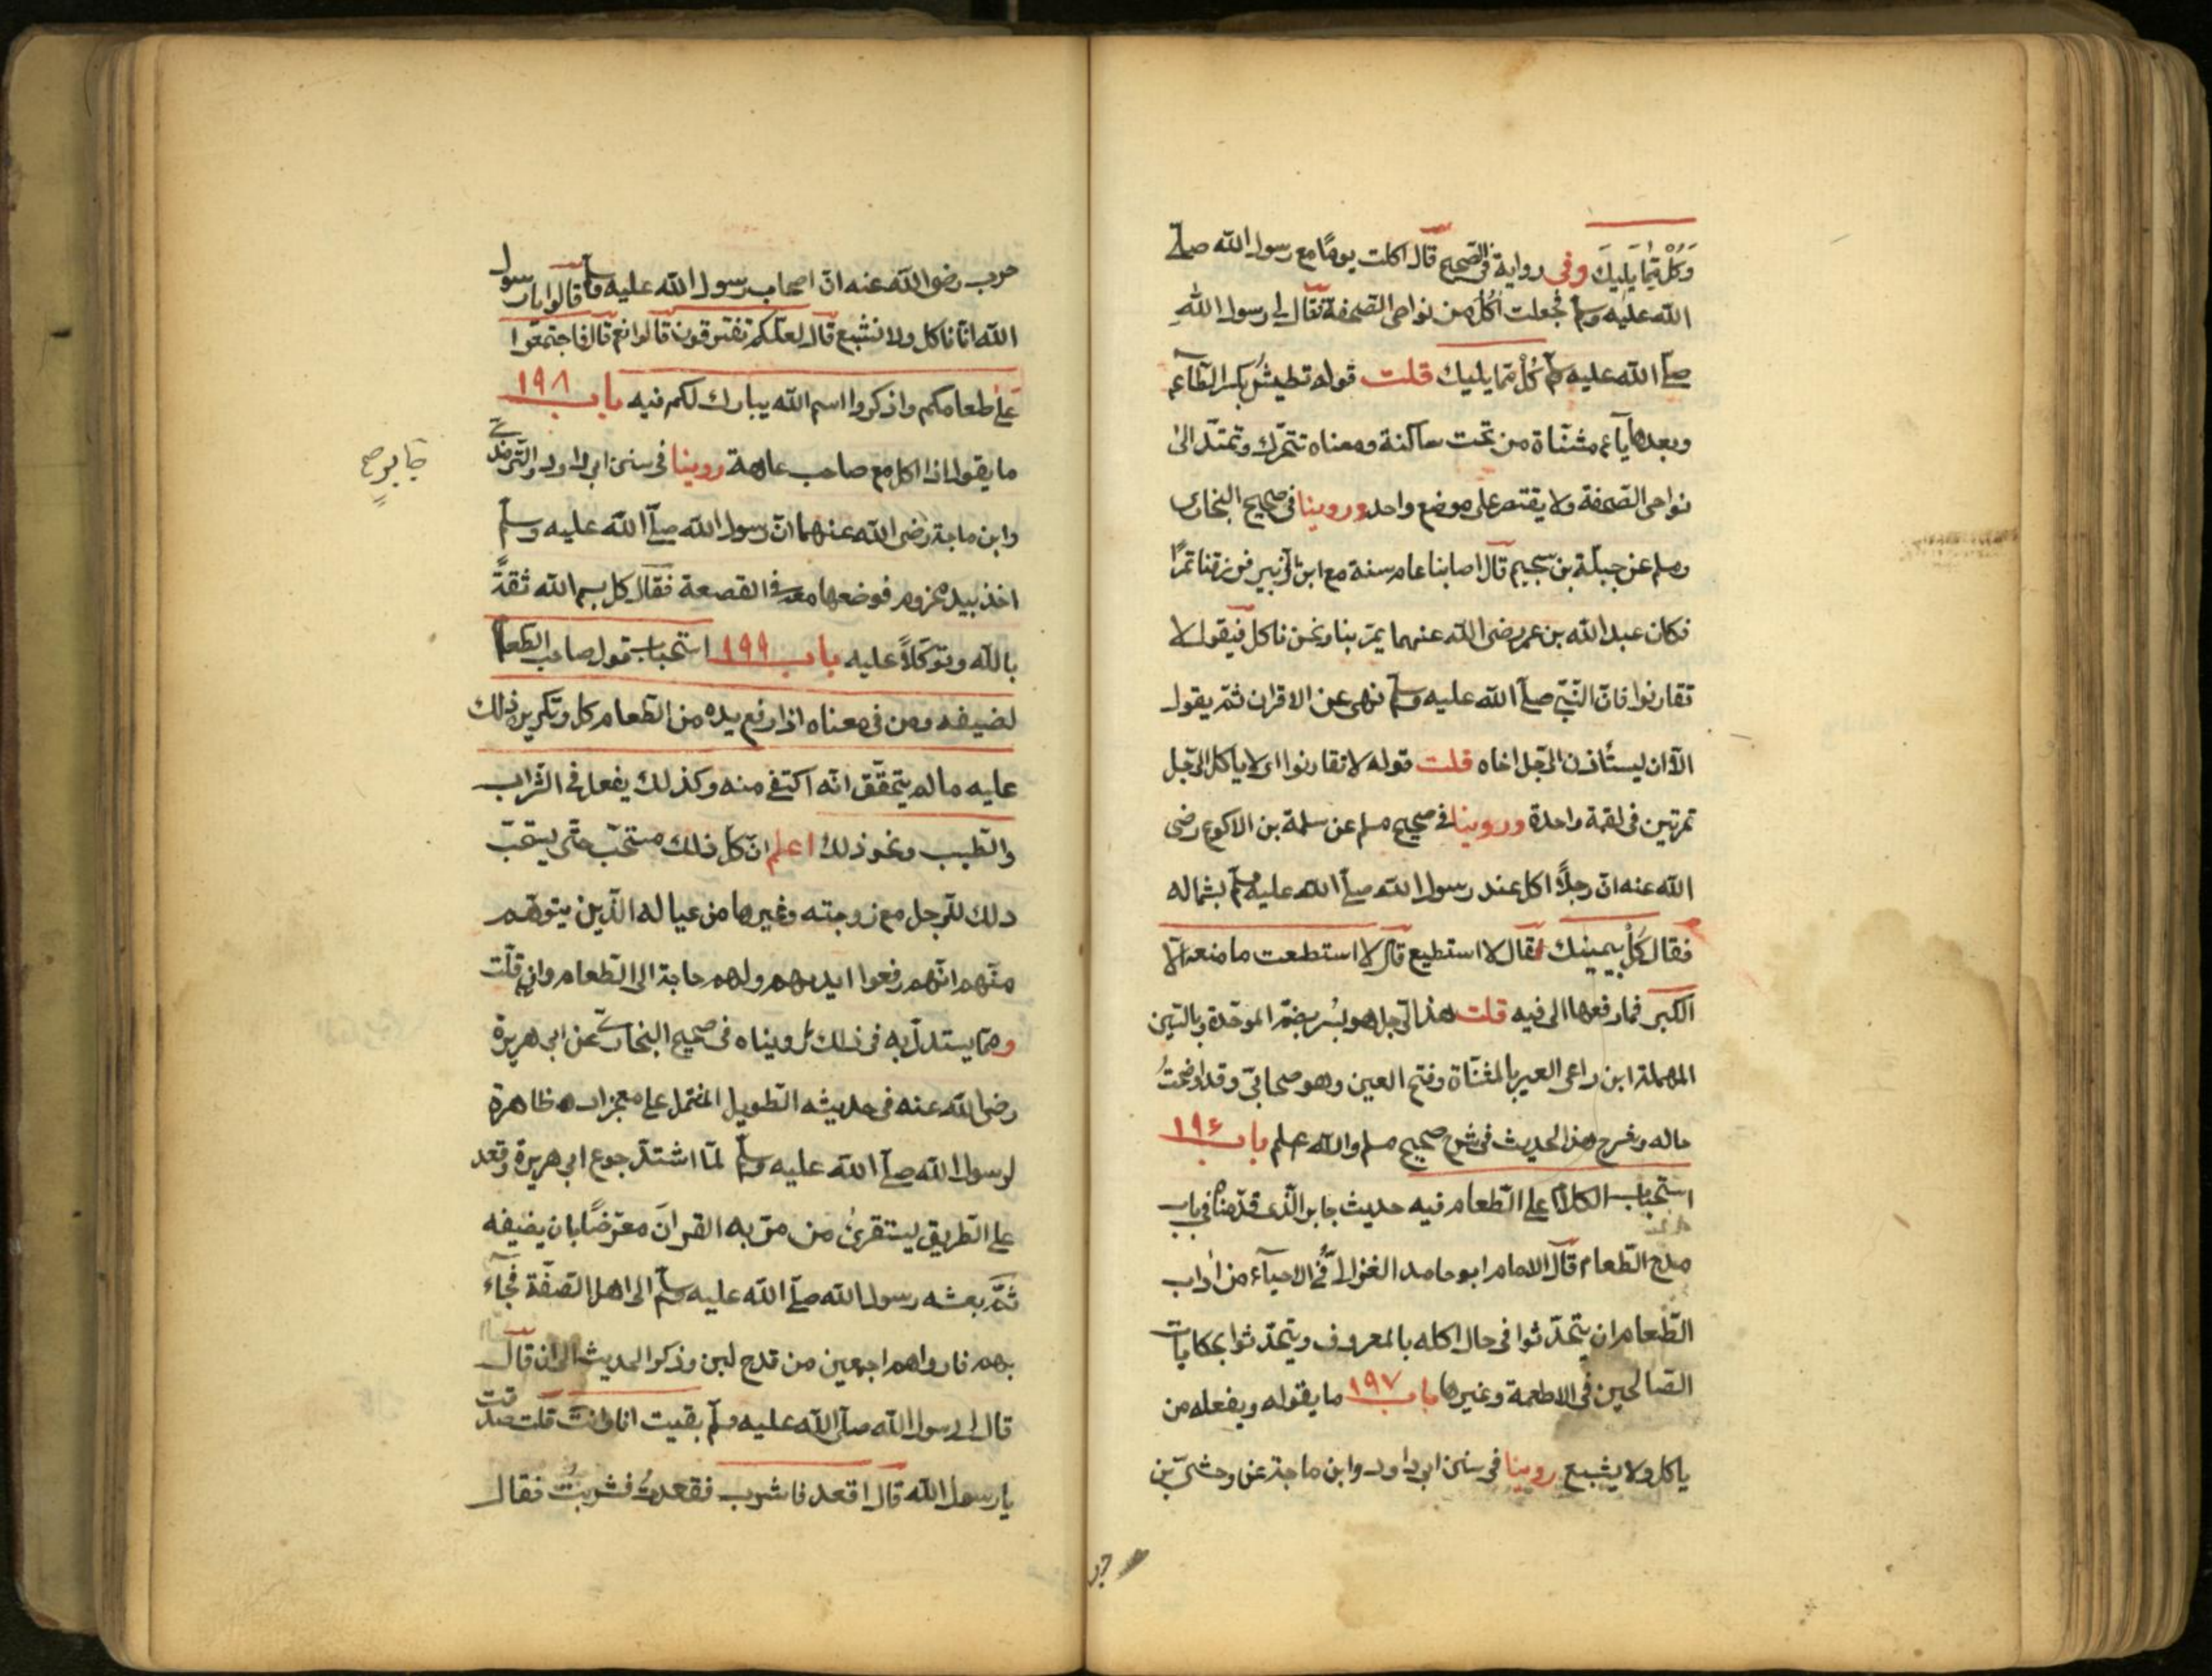 وَكُلْ مِمَّا يَلِيكَ وفى رواية فى الصحيح قال اكلت يومًا مع رسول الله صلى
الله عليه وسلم فجعلت آكل من نواحى الصحفة فقال لى رسول اللهِ
صلى الله عليه وسلم كُلْ مما يليك قلت قوله تطيش بكسر الطاء
وبعدها ياء مثناة من تحت ساكنة ومعناه تتحرك وتمتد الى
نواحى الصحفة ولا يقتصر على موضع واحد وروينا فى صحيح البخارى
ومسلم عن جبلة بن سحيم قال اصابنا عام سنة مع ابن الزبير فرزقنا تمرًا
فكان عبد الله بن عمر رضى الله عنهما يمر بنا ونحن ناكل فيقول لا
تقارنوا فان النبى صلى الله عليه وسلم نهى عن الاقران ثم يقول
الا ان يستأذن الرجل اخاه قلت قوله لا تقارنوا اى لا ياكل الرجل
تمرتين فى لقمة واحدة وروينا فى صحيح مسلم عن سلمة بن الاكوع رضى
الله عنه ان رجلًا اكل عند رسول الله صلى الله عليه وسلم بشماله
فقال كُلْ بيمينك فقال لا استطيع قال لا استطعت ما منعه الا
الكبر فما رفعها الى فيه قلت هذا الرجل هو بُسْر بضم الموحدة وبالسين
المهملة ابن راعى العير بالمثناة وفتح العين وهو صحابى وقد اوضحتُ
حاله وشرح هذا الحديث فى شرح صحيح مسلم والله اعلم باب ١٩٦
استحباب الكلام على الطعام فيه حديث جابر الذى قدمناه فى باب
مدح الطعام قال الامام ابو حامد الغزالى فى الاحياء من اداب
الطعام ان يتحدثوا فى حال اكله بالمعروف ويتحدثوا بحكايات
الصالحين فى الاطعمة وغيرها باب ١٩٧ ما يقوله ويفعله من
ياكل ولا يشبع روينا فى سنن ابى داود وابن ماجة عن وحشى بن
حرب
حرب رضى الله عنه ان اصحاب رسول الله عليه وسلم قالوا يا رسول
الله انا ناكل ولا نشبع قال لعلكم تفترقون قالوا نعم قال فاجتمعوا
على طعامكم واذكروا اسم الله يبارك لكم فيه باب ١٩٨
ما يقول اذا اكل مع صاحب عاهة روينا فى سنن ابى داود والترمذى
وابن ماجة رضى الله عنهما ان رسول الله صلى الله عليه وسلم
اخذ بيد مجزوم فوضعها معه فى القصعة فقال كل بسم الله ثقةً
بالله وتوكلًا عليه باب ١٩٩ استحباب قول صاحب الطعام
لضيفه ومن فى معناه اذا رفع يده من الطعام كل وتكريره ذلك
عليه ما لم يتحقق انه اكتفى منه وكذلك يفعل فى الشراب
والطيب ونحو ذلك اعلم ان كل ذلك مستحب حتى يستحب
ذلك للرجل مع زوجته وغيرها من عياله الذين يتوهم
منهم انهم رفعوا ايديهم ولهم حاجة الى الطعام وان قلّت
ومما يستدل به فى ذلك ما رويناه فى صحيح البخارى عن ابى هريرة
رضى الله عنه فى حديثه الطويل المشتمل على معجزات ظاهرة
لرسول الله صلى الله عليه وسلم لما اشتد جوع ابى هريرة وقعد
على الطريق ليستقرئ من مر به القرآن معرضًا بان يضيفه
ثم بعثه رسول الله صلى الله عليه وسلم الى اهل الصفة فجاء
بهم فارواهم اجمعين من قدح لبن وذكر الحديث الى ان قال
قال لى رسول الله صلى الله عليه وسلم بقيت انا وانت قلت صدقت
يا رسول الله قال اقعد فاشرب فقعدتُ فشربتُ فقال
جابر صح